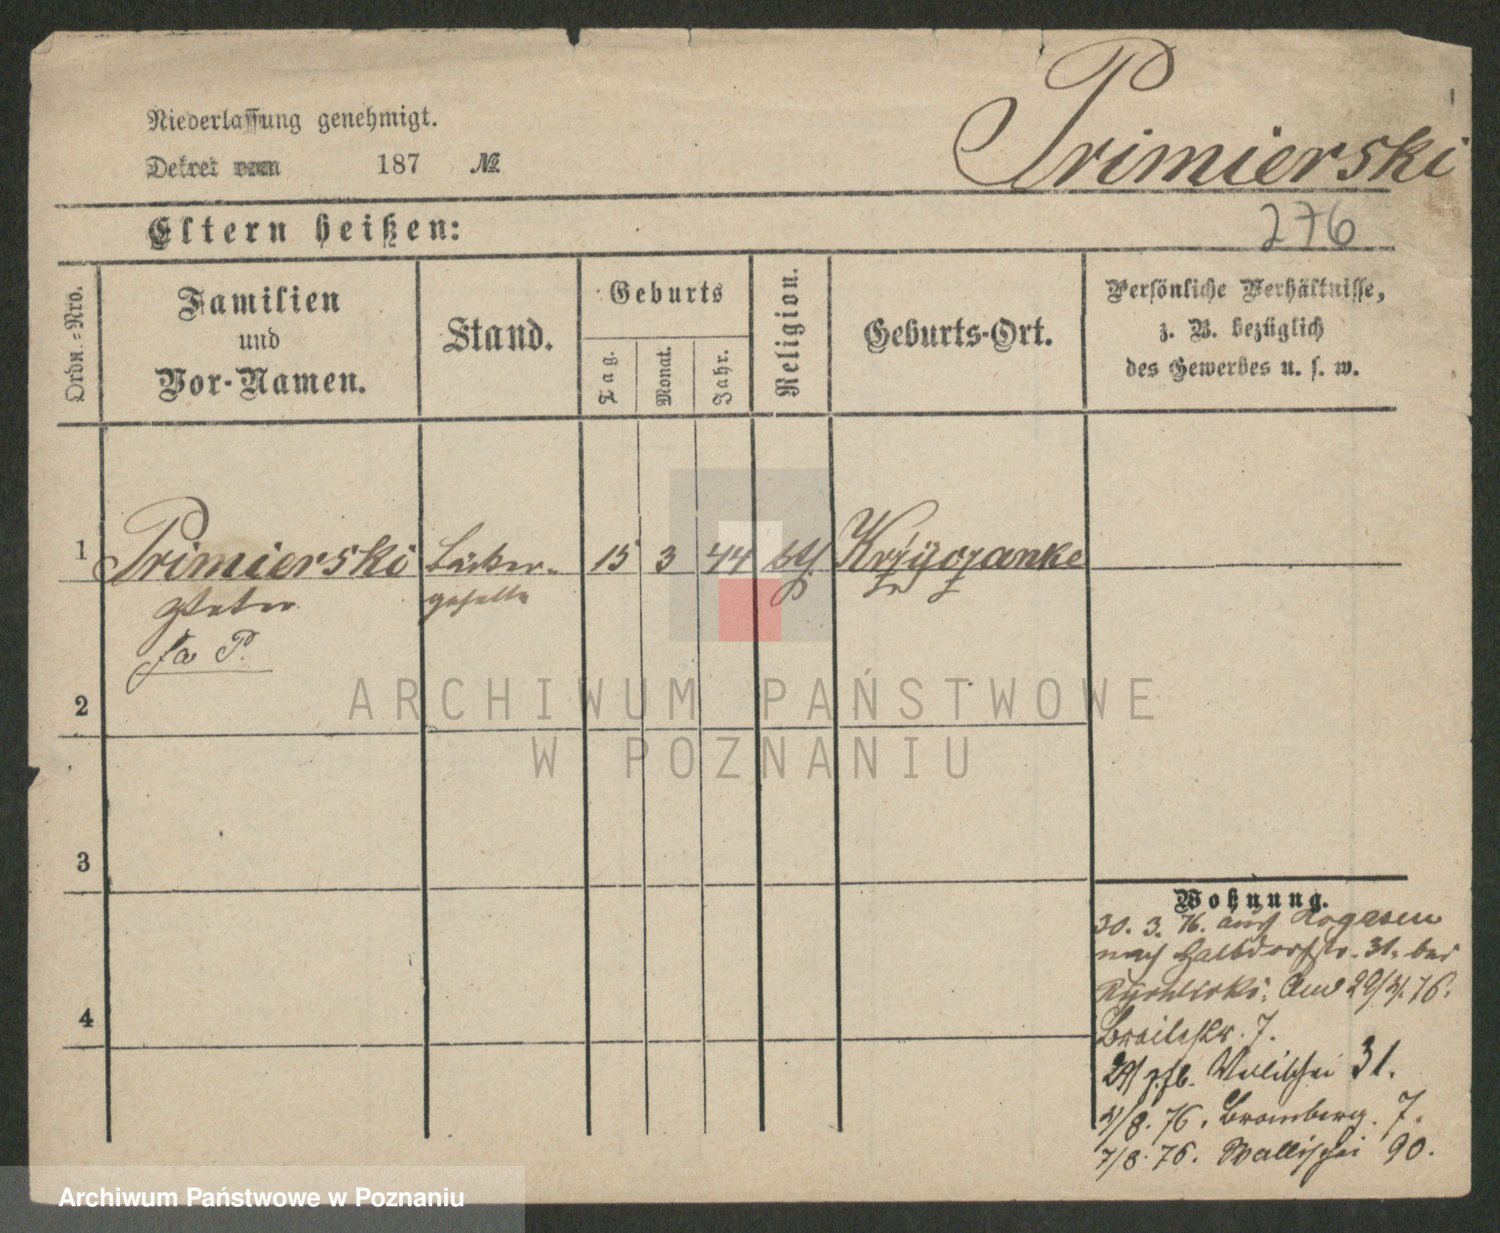 Niederlassung genehmigt.
Dekret vom 187 №
Primierski
276
Eltern heißen:
Ordn.-Nro.
Familien
und
Vor-Namen.
Stand.
Geburts
Tag.
Monat.
Jahr.
Religion.
Geburts-Ort.
Persönliche Verhältnisse,
z. B. bezüglich
des Gewerbes u. s. w.
1 Primierski Bäcker- 15 3 44 kth Krzyożanke
Peter geselle
P.
2
ARCHIWUM PAŃSTWOWE
W POZNANIU
3
4
Wohnung.
30. 3. 76. aus Rogasen
nach Halbdorfstr. 31. bei
Am 29/4. 76.
Breitestr. 7.
Wallischei 31.
4/8. 76. Bromberg. 7.
7/8. 76. Wallischei 90.
Archiwum Państwowe w Poznaniu